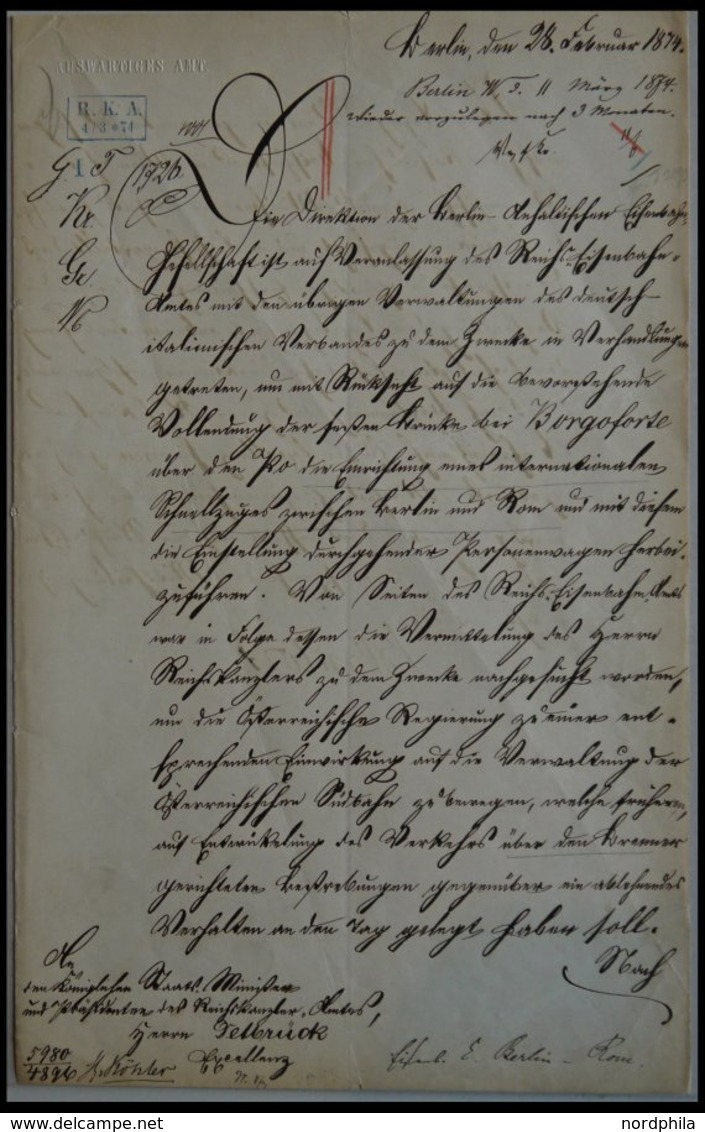 Berlin, den 28. Februar 1874.
AUSWÄRTIGES AMT.
Berlin W. 2. 11 März 1874.
wieder vorzulegen nach 3 Monaten.
R. K. A.
4/3 74
1726
Die Direktion der Berlin-Anhaltischen Eisenbahn-
Gesellschaft ist auf Veranlassung des Reichs-Eisenbahn-
Amtes mit den übrigen Verwaltungen des deutsch-
italienischen Verbandes zu dem Zwecke in Verhandlungen
getreten, um mit Rücksicht auf die bevorstehende
Vollendung der festen Brücke bei Borgoforte
über den Po die Einrichtung eines internationalen
Schnellzuges zwischen Berlin und Rom und mit diesem
die Einstellung durchgehender Personenwagen herbei-
zuführen. Von Seiten des Reichs-Eisenbahn-Amts
war in Folge dessen die Vermittelung des Herrn
Reichskanzlers zu dem Zwecke nachgesucht worden,
um die Österreichische Regierung zu einer ent-
sprechenden Einwirkung auf die Verwaltung der
Österreichischen Südbahn zu bewegen, welche früheren,
auf Entwickelung des Verkehrs über den Brenner
gerichteten Bestrebungen gegenüber ein ablehnendes
Verhalten an den Tag gelegt haben soll.
Nach
An
den Königlichen Staats-Minister
und Präsidenten des Reichskanzler-Amtes,
Herrn Delbrück
Excellenz
5980
4896
Eisenb. E. Berlin - Rom.
nordphila.com